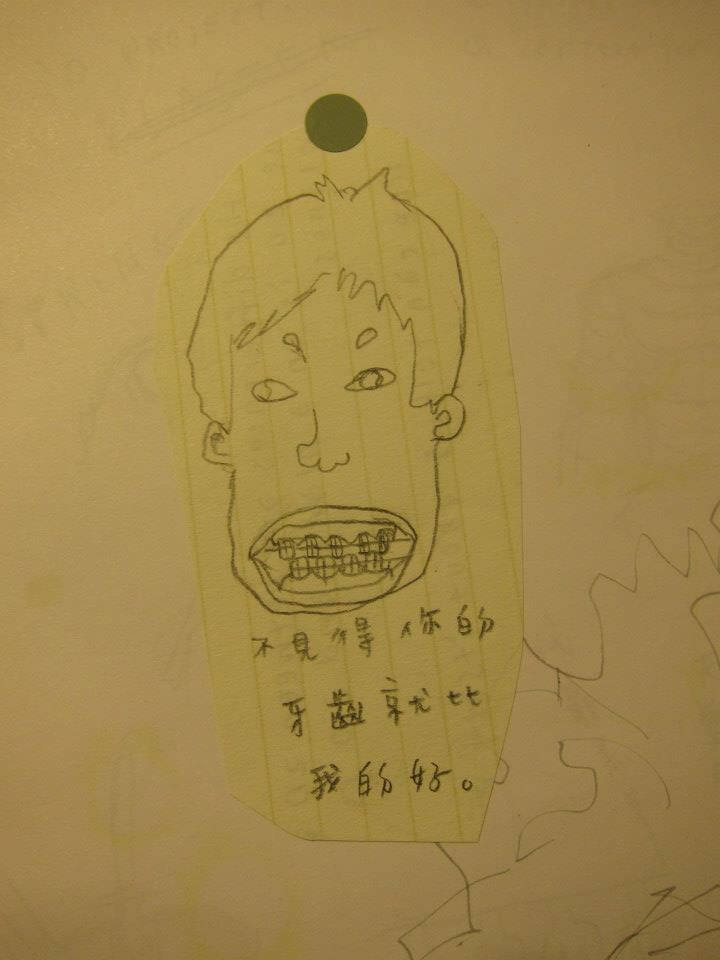 不見得你的
牙齒就比
我的好。